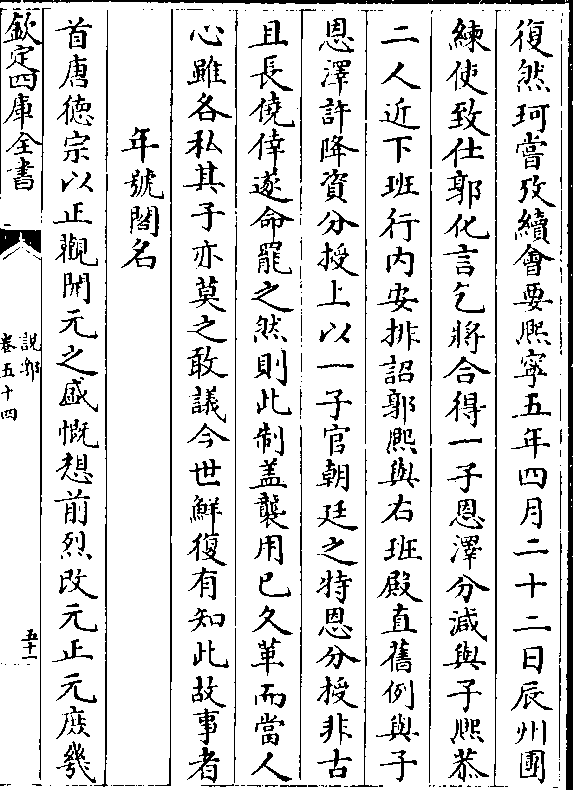 復然珂嘗攷續會要熙寧五年四月二十二日辰州團
練使致仕郭化言乞將合得一子恩澤分減與子熙恭
二人近下班行内安排詔郭熙與右班殿直舊例與子
恩澤許降資分授上以一子官朝廷之特恩分授非古
且長僥倖遂命罷之然則此制盖襲用已久革而當人
心雖各私其子亦莫之敢議今世鮮復有知此故事者
年號閣名
首唐徳宗以正觀開元之盛慨想前烈改元正元庶幾
欽定四庫全書
說郛
卷五十四
五十一